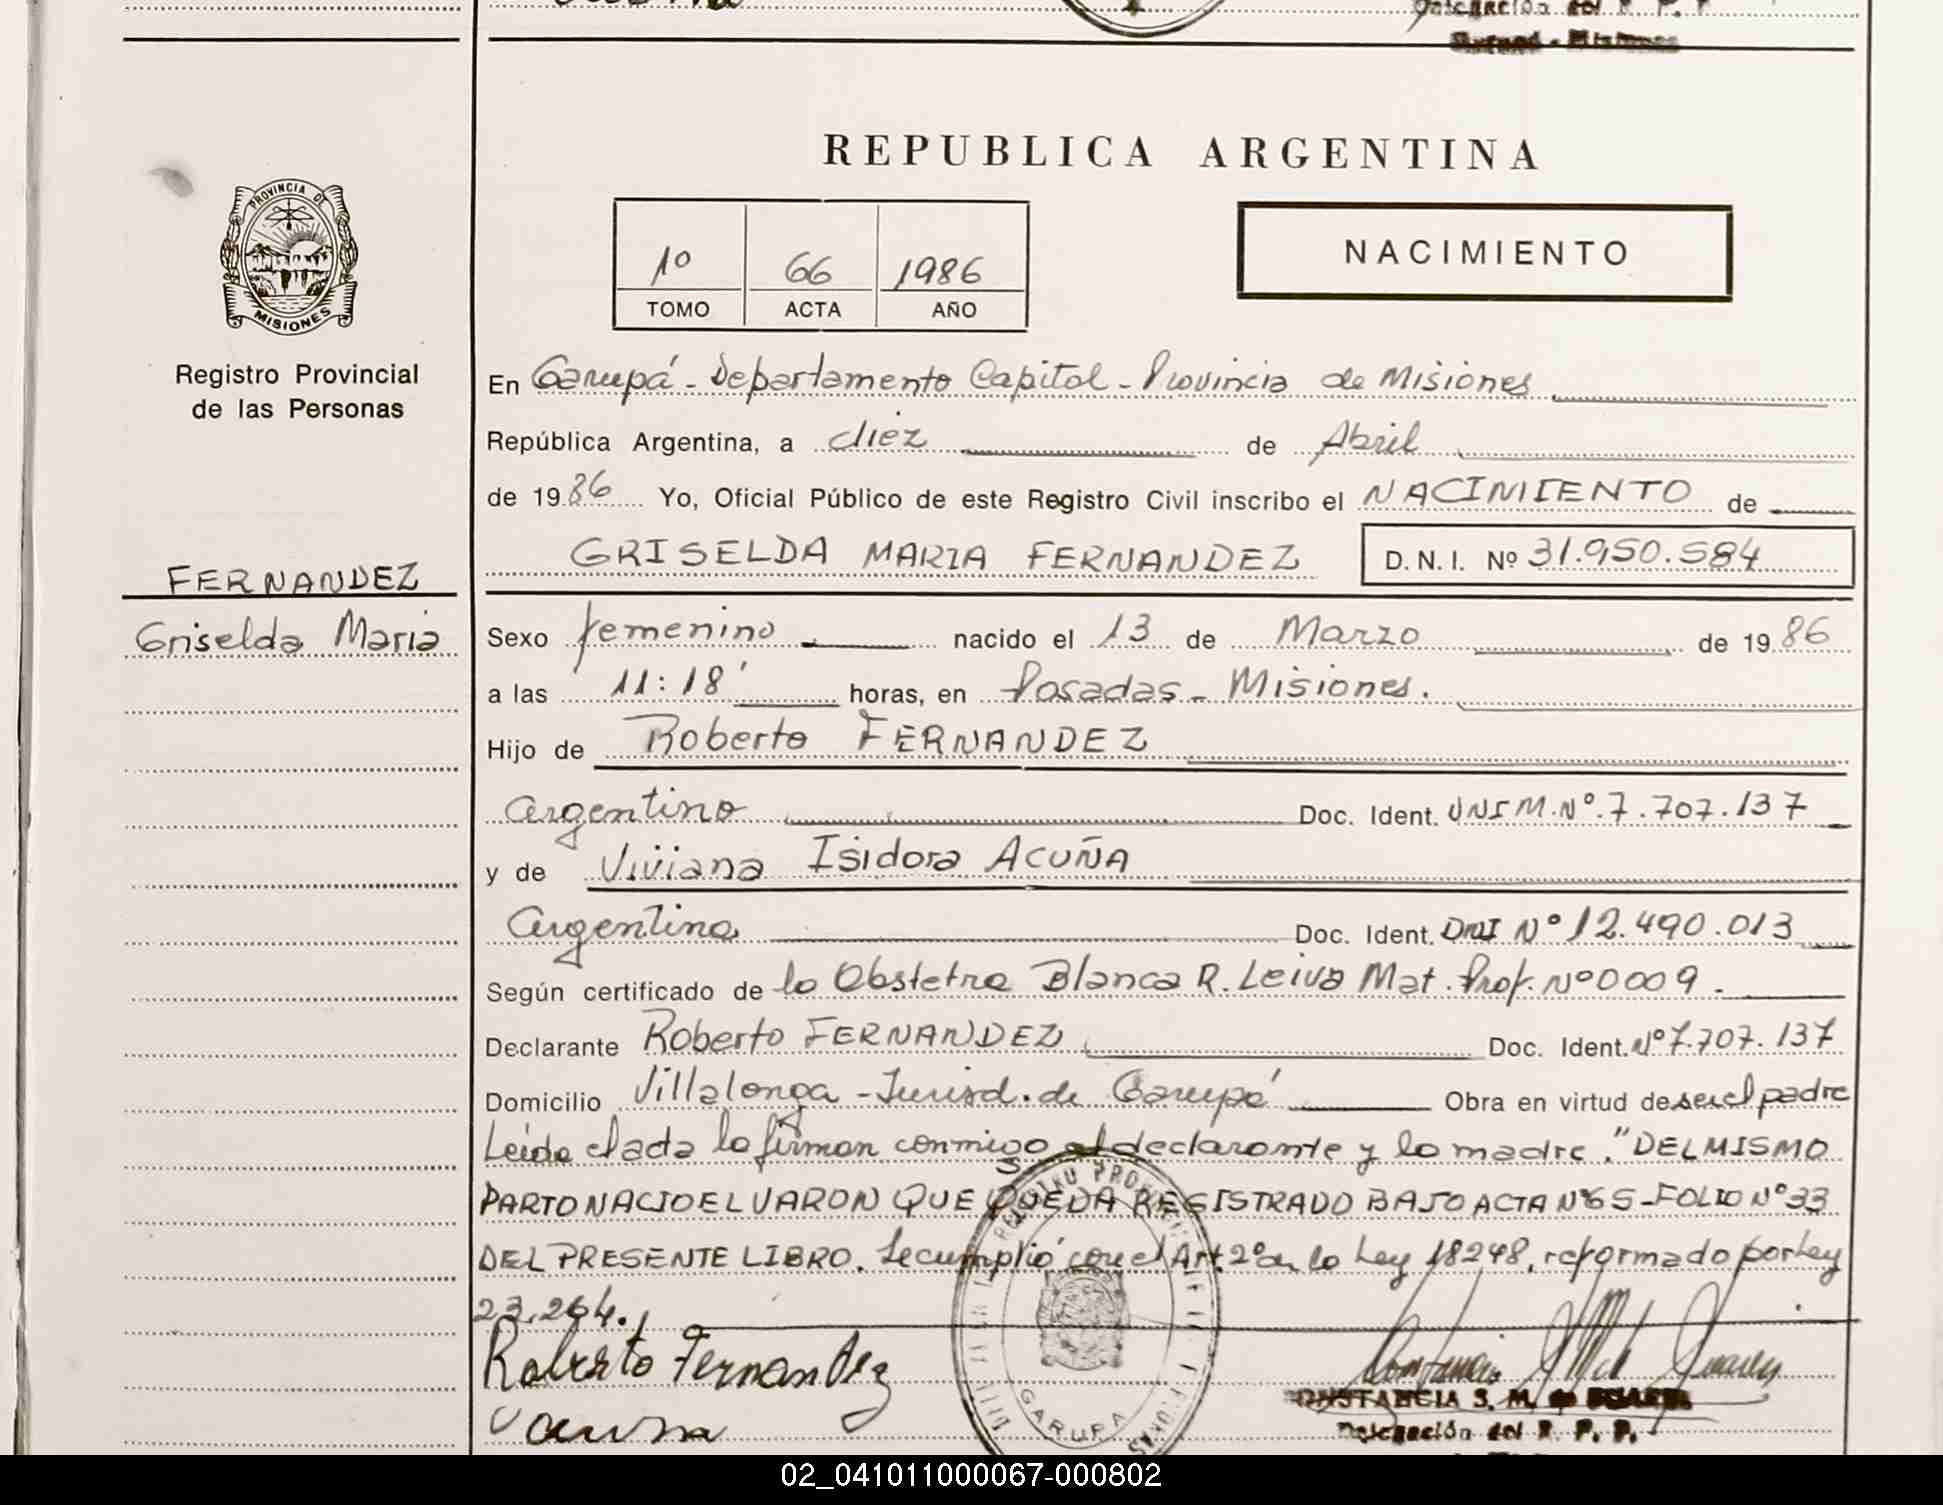 Delegación del R. P. P.
Garupá - Misiones
REPUBLICA ARGENTINA
PROVINCIA DE
MISIONES
Registro Provincial
de las Personas
1º 66 1986
TOMO ACTA AÑO
NACIMIENTO
En Garupá - Departamento Capital - Provincia de Misiones
República Argentina, a diez de Abril
de 1986 Yo, Oficial Público de este Registro Civil inscribo el NACIMIENTO de
GRISELDA MARIA FERNANDEZ D. N. I. Nº 31.950.584
FERNANDEZ
Griselda Maria
Sexo femenino nacido el 13 de Marzo de 1986
a las 11:18' horas, en Posadas - Misiones.
Hijo de Roberto FERNANDEZ
argentino Doc. Ident. DNI M. Nº. 7.707.137
y de Viviana Isidora ACUÑA
Argentina Doc. Ident. DNI Nº 12.490.013
Según certificado de la Obstetra Blanca R. Leiva Mat. Prof. Nº 0009.
Declarante Roberto FERNANDEZ Doc. Ident. Nº 7.707.137
Domicilio Villalonga - Jurisd. de Garupá Obra en virtud de ser el padre
Leída el acta la firman conmigo el declarante y la madre. "DEL MISMO
PARTO NACIO EL VARON QUE QUEDA REGISTRADO BAJO ACTA Nº 65 - FOLIO Nº 33
DEL PRESENTE LIBRO. Se cumplió con el Art. 2º de la Ley 18248, reformado por Ley
23.264.
Roberto Fernandez
Vacuña
GARUPA
CONSTANCIA S. M. de SUAREZ
Delegación del R. P. P.
02_041011000067-000802